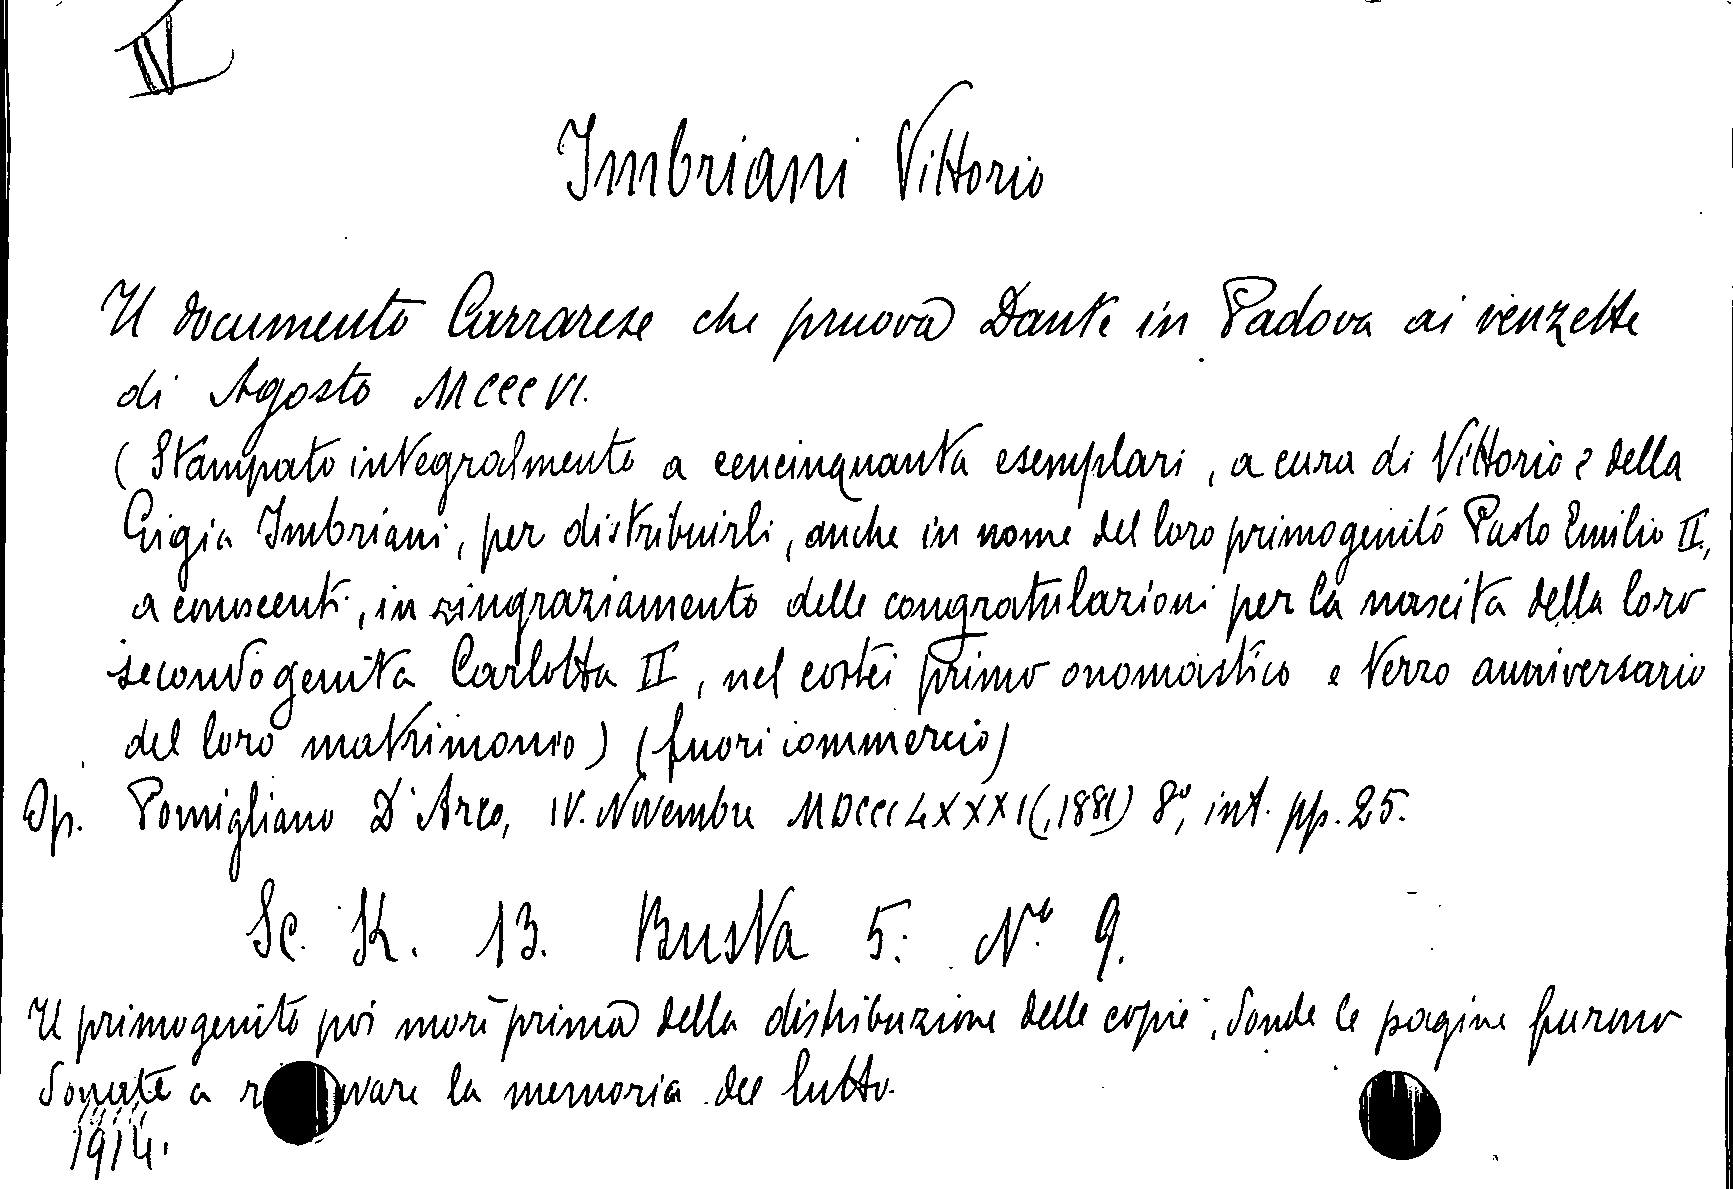 IV
Imbriani Vittorio
Il documento Carrarese che pruova Dante in Padova ai venzette
di Agosto MCCCVI.
(Stampato integralmente a cencinquanta esemplari, a cura di Vittorio e della
Gigia Imbriani, per distribuirli, anche in nome del loro primogenito Paolo Emilio II,
a conoscenti, in ringraziamento delle congratulazioni per la nascita della loro
secondogenita Carlotta II, nel costei primo onomastico e terzo anniversario
del loro matrimonio) (fuori commercio)
Op. Pomigliano D'Arco, IV. Novembre MDCCCLXXXI (1881) 8º, int. pp. 25.
Sc. K. 13. Busta 5. Nº 9.
Il primogenito poi morì prima della distribuzione delle copie, donde le pagine furono
donate a la memoria del lutto.
1914.